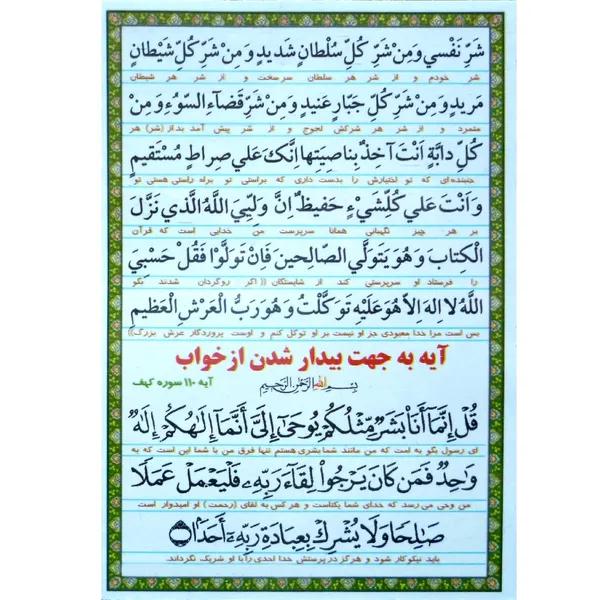 شَرِّ نَفْسي وَمِنْ شَرِّ كُلِّ سُلْطانٍ شَديدٍ وَمِنْ شَرِّ كُلِّ شَيْطانٍ
شر خودم و از شر هر سلطان سرسخت و از شر هر شیطان
مَريدٍ وَمِنْ شَرِّ كُلِّ جَبّارٍ عَنيدٍ وَمِنْ شَرِّ قَضآءِ السّوُءِ وَمِنْ
متمرد و از شر هر شرکش لجوج و از شر پیش آمد بد از (شر) هر
كُلِّ دابَّةٍ اَنْتَ آخِذٌ بِناصِيَتِها اِنَّكَ عَلي صِراطٍ مُسْتَقيمٍ
جنبنده ای که تو اختیارش را بدست داری که براستی تو براه راستی هستی تو
وَ اَنْتَ عَلي كُلِّشَيْءٍ حَفيظٌ اِنَّ وَلِيِّيَ اللَّهُ الَّذي نَزَّلَ
بر هر چیز نگهبانی همانا سرپرست من خدایی است که قرآن
الْكِتابَ وَ هُوَ يَتَوَلَّي الصّالِحينَ فَاِنْ تَوَلَّوْا فَقُلْ حَسْبِيَ
را فرستاد او سرپرستی کند از شایستگان ((اگر روگردان شدند بگو
اللَّهُ لا اِلهَ اِلاّ هُوَ عَلَيْهِ تَوَكَّلْتُ وَ هُوَ رَبُّ الْعَرْشِ الْعَظيمِ
بس است مرا خدا معبودی جز او نیست بر او توکل کنم و اوست پروردگار عرش بزرگ))
آیه به جهت بیدار شدن از خواب
بِسْمِ اللهِ الرَّحْمٰنِ الرَّحِيمِ
آیه ۱۱۰ سوره کهف
قُلْ إِنَّمَآ أَنَا۠ بَشَرٌ مِّثْلُكُمْ يُوحَىٰٓ إِلَىَّ أَنَّمَآ إِلَٰهُكُمْ إِلَٰهٌ
ای رسول بگو به امت که من مانند شما بشری هستم تنها فرق من با شما این است که به
وَٰحِدٌ فَمَن كَانَ يَرْجُوا۟ لِقَآءَ رَبِّهِۦ فَلْيَعْمَلْ عَمَلًا
من وحی می رسد که خدای شما یکتاست و هر کس به لقای (رحمت) او امیدوار است
صَٰلِحًا وَلَا يُشْرِكْ بِعِبَادَةِ رَبِّهِۦٓ أَحَدًۢا
باید نیکوکار شود و هرگز در پرستش خدا احدی را با او شریک نگرداند.